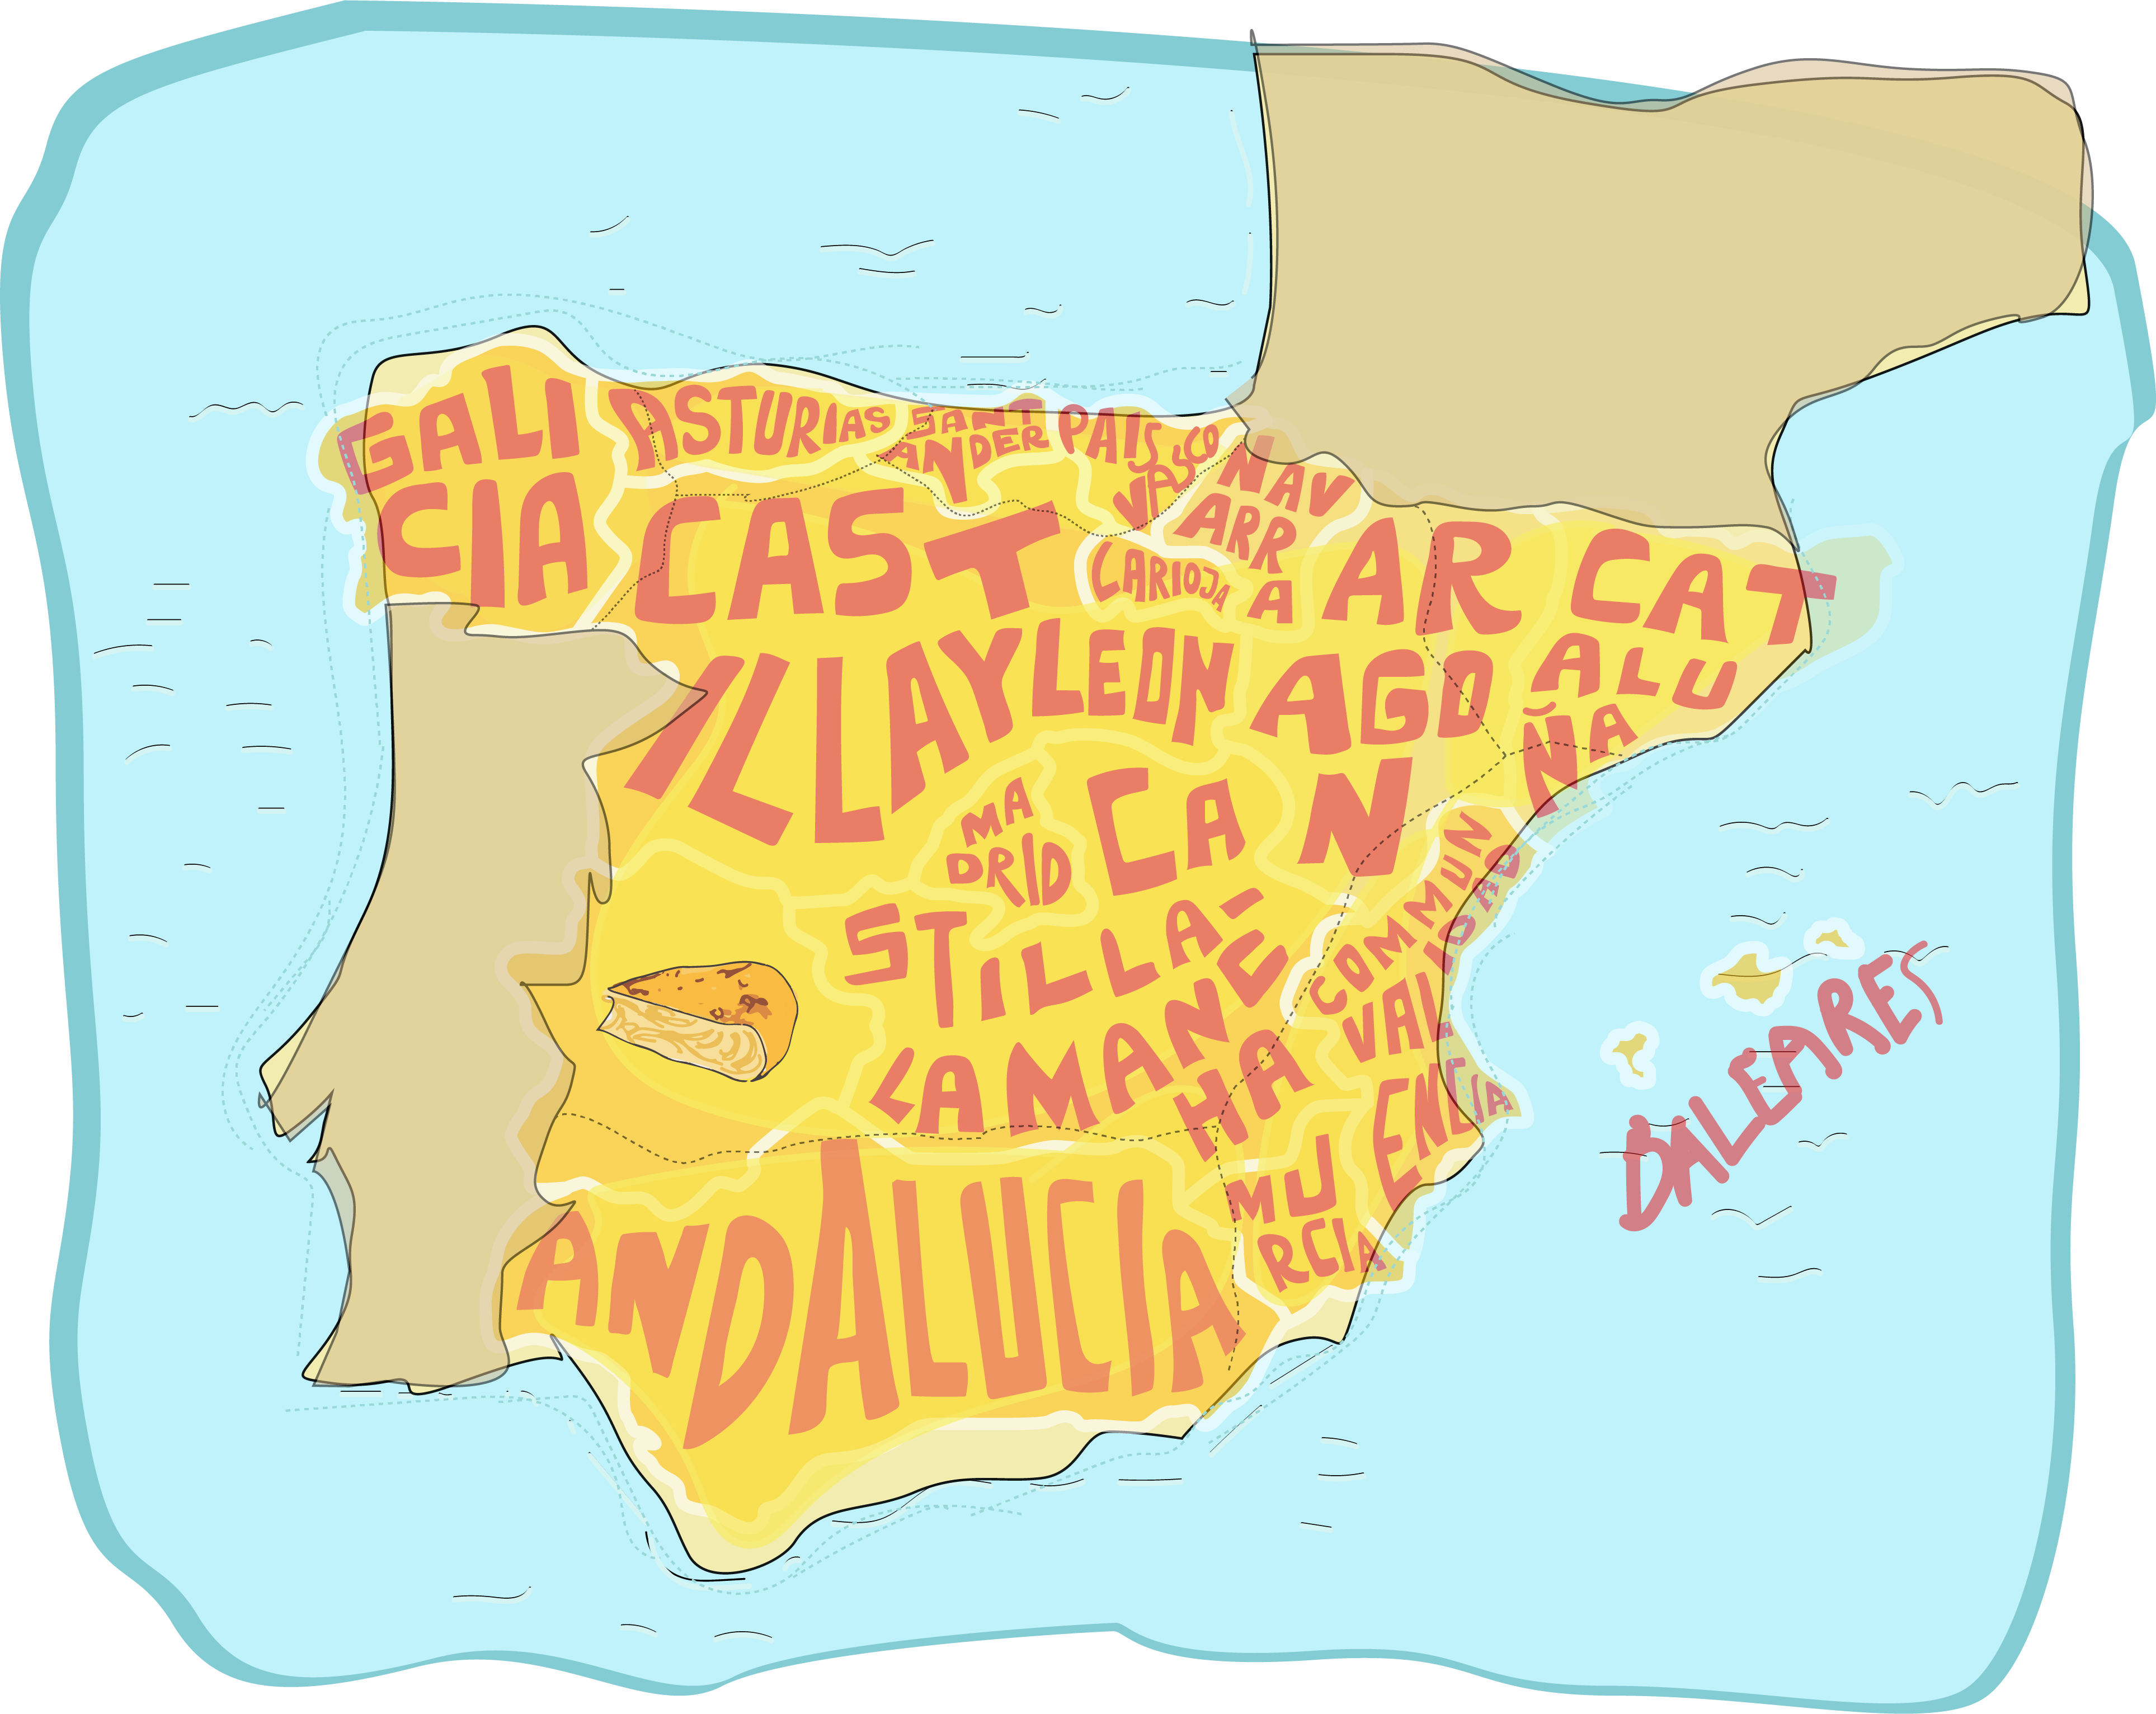 GALI
CIA
ASTURIAS
SANT
ANDER
PAIS
VASCO
NAV
ARR
A
CAST
ILLA Y LEON
LARIOJA
ARAGON
CATALUÑA
MADRID
CASTILLA
LA MANCHA
COMMUNIDAD
VALENCIA
MURCIA
ANDALUCIA
BALEARES